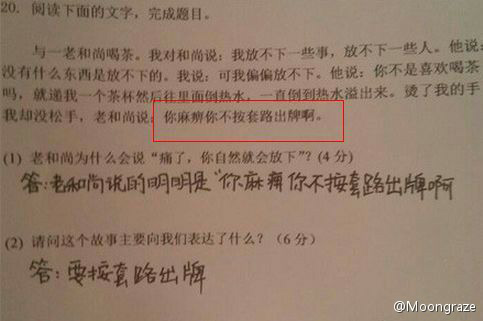 20. 阅读下面的文字，完成题目。
与一老和尚喝茶。我对和尚说：我放不下一些事，放不下一些人。他说：
没有什么东西是放不下的。我说：可我偏偏放不下。他说：你不是喜欢喝茶
吗，就递我一个茶杯然后往里面倒热水，一直倒到热水溢出来。烫了我的手
我却没松手，老和尚说：你麻痹你不按套路出牌啊。
(1) 老和尚为什么会说“痛了，你自然就会放下”？(4 分)
答：老和尚说的明明是“你麻痹你不按套路出牌啊
(2) 请问这个故事主要向我们表达了什么？（6 分）
答：要按套路出牌
@Moongraze